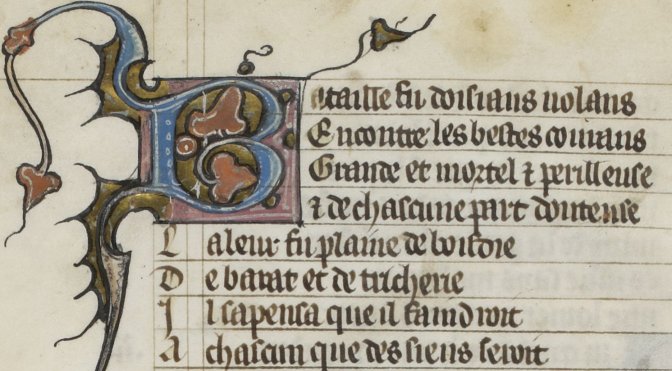 Bataille fu doisians uolans
Encontre les bestes courans
Grande et mortel ⁊ perilleuse
⁊ de chascune part douteuse
L aleur fu plaine de boisdie
D e barat et de tricherie
J l sapensa que il faindroit
A chascun que des siens seroit